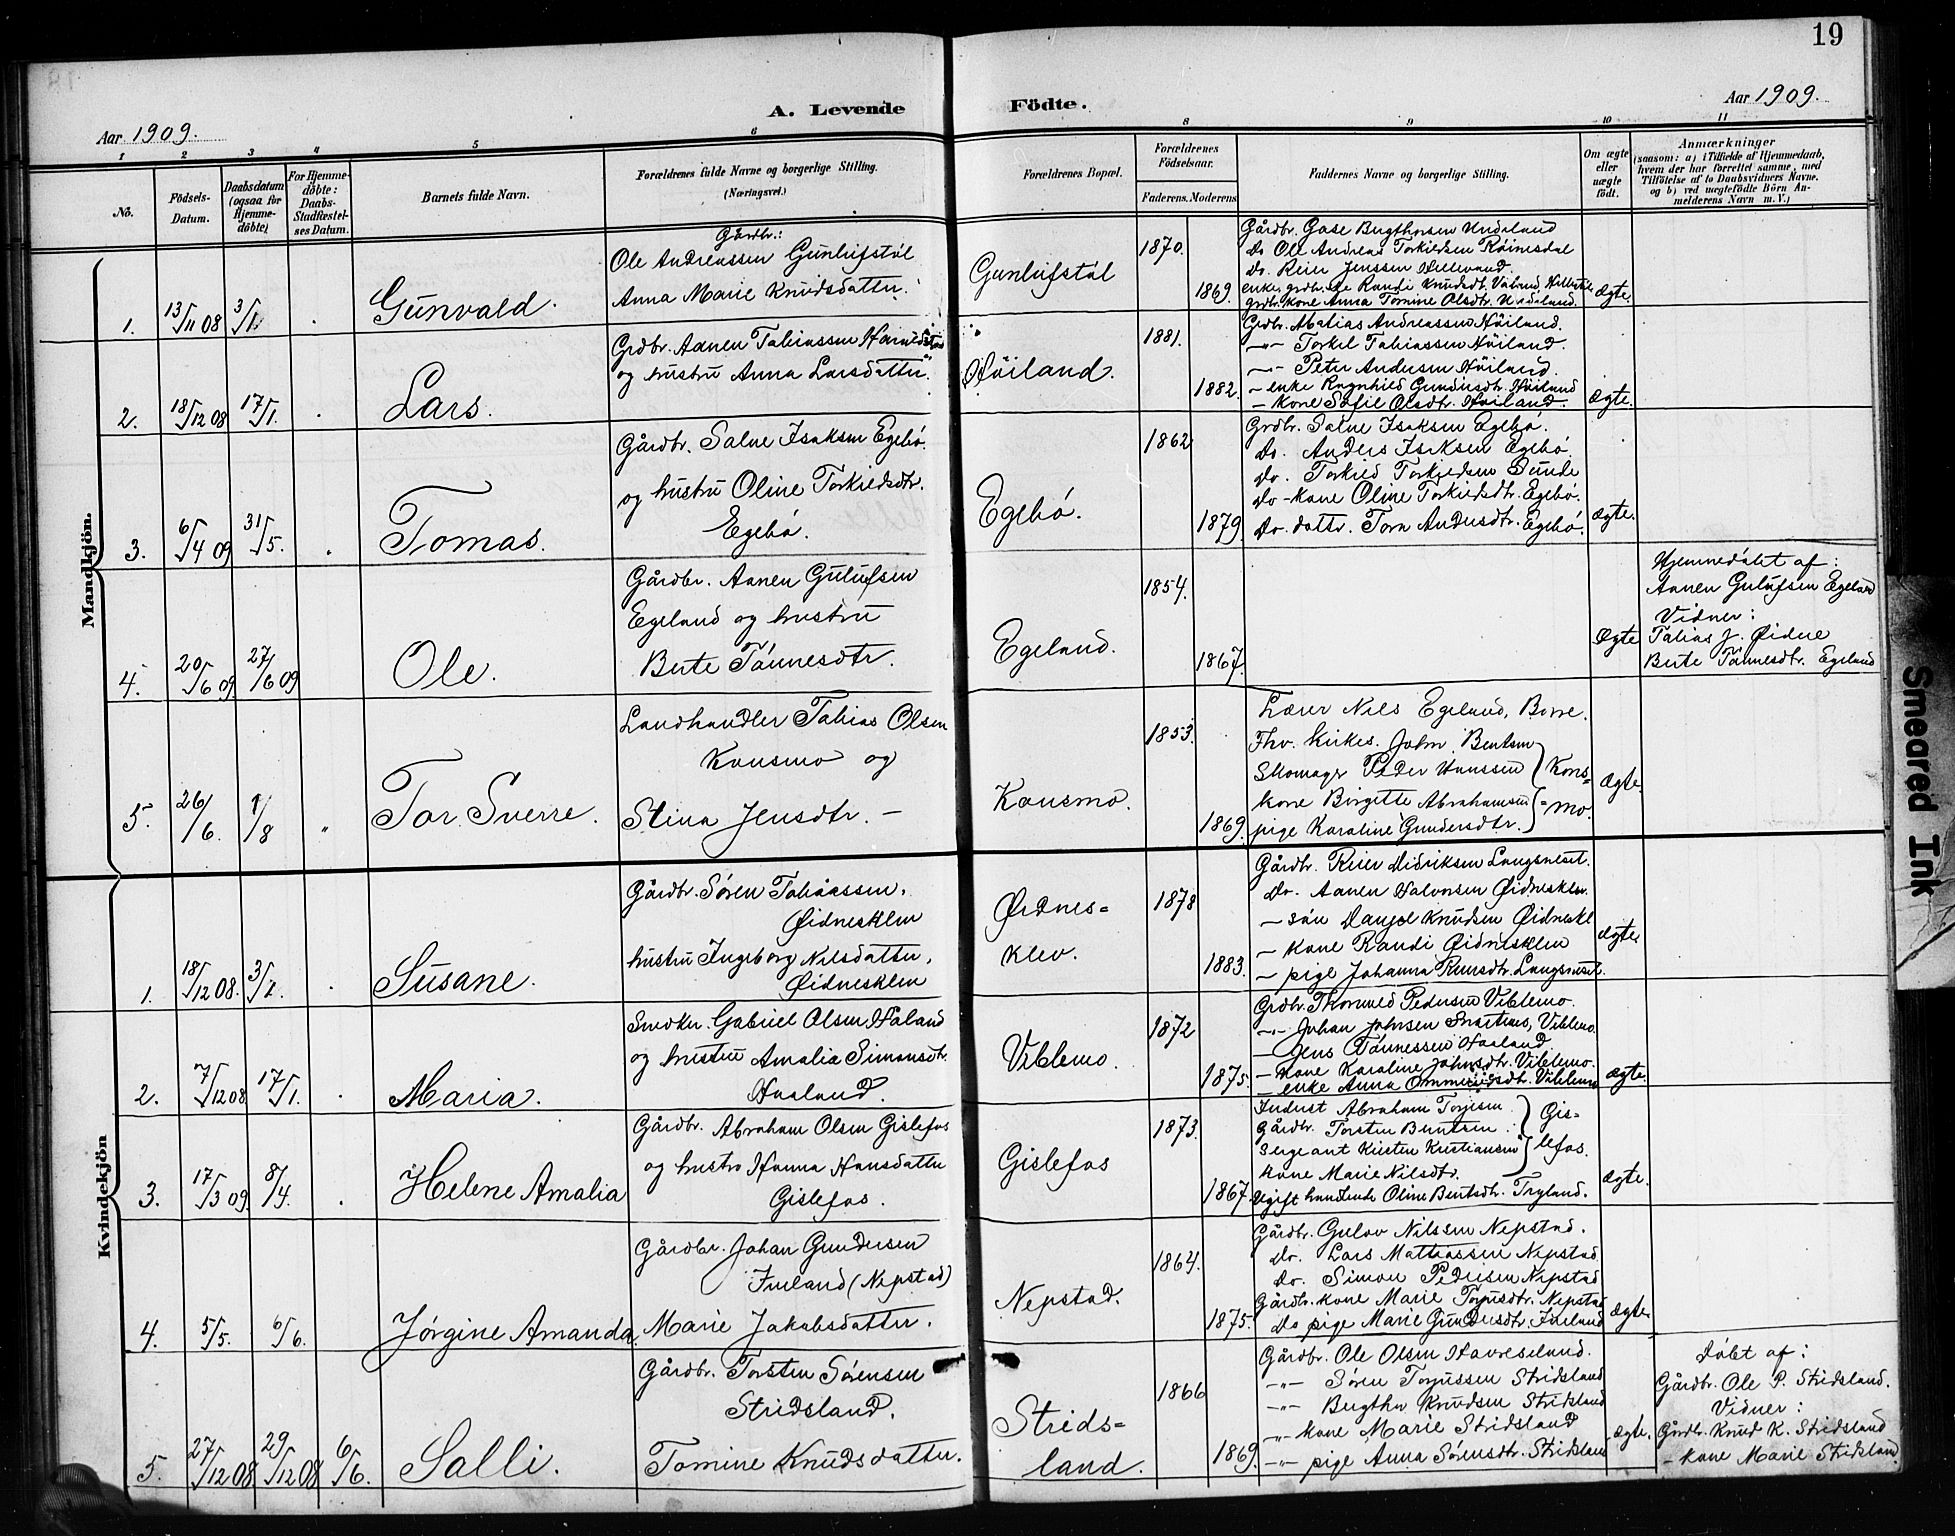 19
A. Levende Födte.
Aar 1909.
Aar 1909.
1 2 3 4 5 6 8 9 10 11
No.
Födsels-
Datum.
Daabsdatum
(ogsaa for
Hjemme-
döbte)
For Hjemme-
döbte:
Daabs-
Stadfæstel-
ses Datum.
Barnets fulde Navn.
Forældrenes fulde Navne og borgerlige Stilling.
(Næringsvei.)
Forældrenes Bopæl.
Forældrenes
Födselsaar.
Faderens. Moderens
Faddernes Navne og borgerlige Stilling.
Om ægte
eller
uægte
födt.
Anmærkninger
(saasom: a) i Tilfælde af Hjemmedaab,
hvem der har forrettet samme, med
Tilföielse af to Daabsvidners Navne.
og b) ved uægtefödte Börn An-
melderens Navn m. V.)
Mandkjön.
1. 13/11 08 3/1. Gunvald.
Gårdbr.:
Ole Andreassen Gunlufstøl
Anna Marie Knudsdatter.
Gunlufstøl
1870.
1869.
Gårdbr. Gase Bergthorsen Undeland
Do Ole Andreas Torkildsen Röinesdal
do. Reier Jenssen Hillevand.
enke grdbr. Randi Knudsdt.
grdbr. kone Anna Tomine Olsdtr. Undeland.
ægte.
2. 18/12 08 17/1. Lars.
Grdbr. Aanen Tobiassen
og hustru Anna Larsdatter.
Höiland.
1881.
1882.
Grdbr. Matias Andreassen Höiland.
-"- Torkel Tobiassen Höiland.
-"- Peter Andersen Höiland.
- enke Ragnhild Gundersdtr. Höiland
- kone Sofie Olsdtr. Höiland.
ægte.
3. 6/4 09 31/5. Tomas.
Gårdbr. Salve Isaksen Egebø.
og hustru Oline Torkildsdtr.
Egebø.
Egebø.
1862
1879
Grdbr. Salve Isaksen Egebø.
Do. Anders Isaksen Egebø.
do. Torkild Torkildsen Sunde
Do - kone Oline Torkildsdtr. Egebø.
Do. dattr. Tora Andersdtr. Egebø.
ægte.
4. 20/6 09 27/6 09 Ole.
Gårdbr. Aanen Gulufsen
Egeland og hustru
Berte Tønnesdtr.
Egeland.
1854.
1867.
Ægte
Hjemmedøbt af:
Aanen Gulufsen Egeland
Vidner:
Tobias J. Øidne
Berte Tønnesdtr. Egeland
5. 26/6. 1/8 " Tor Sverre.
Landhandler Tobias Olsen
Konsmo og
Stina Jensdtr. -
Konsmo.
1853.
1869.
Lærer Nils Egeland, Borre.
Fhv. kirkes. John Bentsen
Skomager Peder Hanssen } Kons=
kone Birgitte Abrahamsen
pige Karoline Gundersdtr. mo.
ægte.
Kvindekjön
1. 18/12 08. 3/1. Susane.
Gårdbr. Søren Tobiassen.
Øidnesklev
hustru Ingeborg Nilsdatter,
Øidnesklev
Øidnes=
klev.
1878
1883.
Gårdbr. Reier Didriksen Langsneset.
do. Aanen Halvorsen Øidnesklev.
- søn Danjel Knudsen Øidneskl
- kone Randi Øidnesklev
- pige Johanna Langsneset.
ægte.
2. 7/12 08 17/1. Maria.
Snedker. Gabriel Olsen Haland
og hustru Amalia Simonsdtr.
Haaland.
Viblemo.
1872
1875.
Grdbr. Thorvald Pedersen Viblemo.
-"- Johan Johnsen Viblemo.
- Jens Tønnessen Haaland
- kone Karoline Johnsdtr. Viblemo.
- enke Anna Ommundsdtr. Viblemo
ægte.
3. 17/3 09. 8/4. Helene Amalia
Gårdbr. Abraham Olsen Gislefos
og hustro Hanna Hansdatter
Gislefos.
Gislefos
1873.
1867.
Inderst Abraham Torjesen } Gis=
Gårdbr. Torsten Bentsen.
Sergeant Kirsten Kristiansen lefos.
kone Marie Nilsdtr.
Ugift handlende Oline Bentsdtr. Tryland.
ægte.
4. 5/5. 6/6. Jørgine Amanda.
Gårdbr. Johan Gundersen
Fueland (Nepstad)
Marie Jakobsdatter.
Nepstad.
1864.
1875.
Gårdbr. Gulov Nilsen Nepstad.
do. Lars Mathiassen Nepstad
do. Simon Pedersen Nepstad
Gårdbr. kone Marie Torjusdtr. Nepstad
Do pige Marie Gundersdtr.
ægte.
5. 27/12 08 29/12 08 6/6. Salli.
Gårdbr. Torsten Sørensen
Stridsland.
Tomine Knudsdatter.
Strids=
land.
1866
1869.
Gårdbr. Ole Olsen Havreseland.
-"- Søren Torjussen Stridsland
-"- Bergthor Knudsen Stridsland
-"- kone Marie Stridsland
-"- pige Anna Sørensdtr. Stridsland
ægte.
Døbt af:
Gårdbr. Ole P. Stridsland.
Vidner:
Grdbr. Knud K. Stridsland
- kone Marie Stridsland.
Smeared Ink